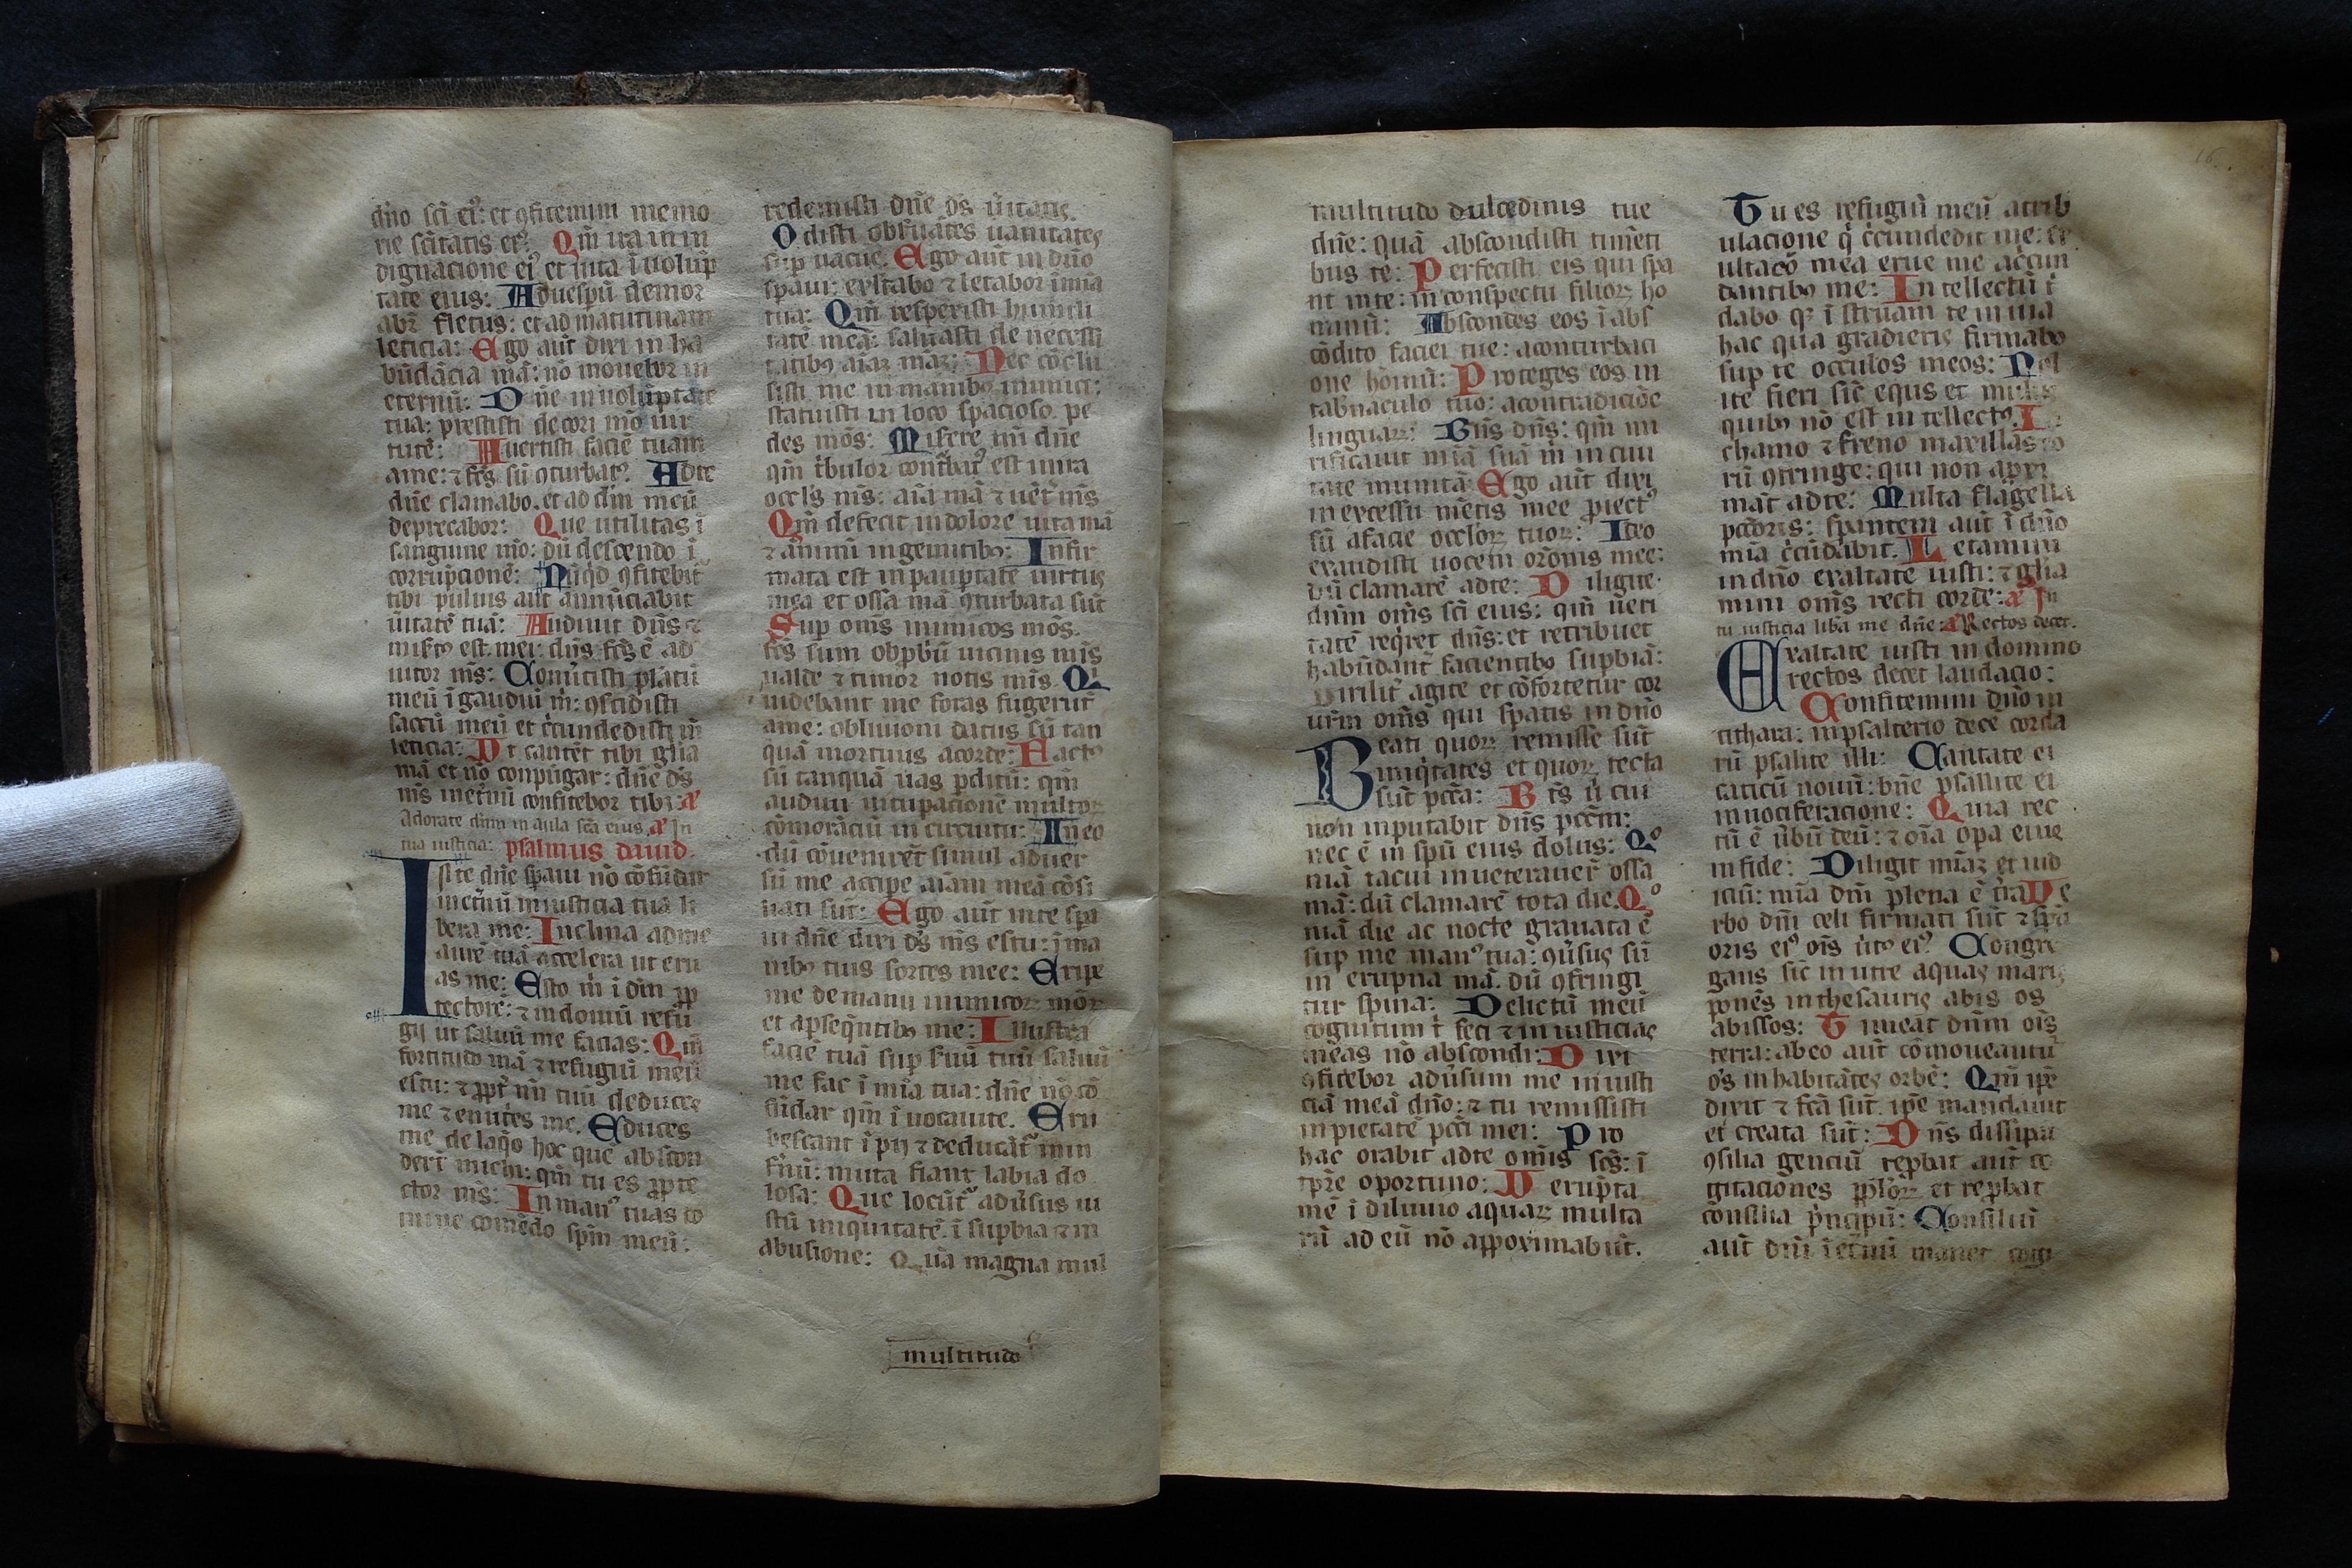 dño sči eiꝰ: et ꝯfitemini memo
rie sčitatis eiꝰ. Qm̄ ira in in
dignacione eiꝰ et uita ī uolūp
tate eius: Aduespū demor
abr̄ fletus: et ad matutinam
leticia: Ego aūt dixi in ha
būdācia mā: nō mouebor in
eternū: Dñe in uolūptate
tua: prestisti decori mō uir
tutē: Auertisti faciē tuam
ame: ⁊ fčs sū ꝯturbatꝰ Adte
dñe clamabo. et ad dm̄ meū
deprecabor: Que utilitas ī
sanguine mō: dū descendo ī
corrupcionē: Nūqd ꝯfitebit̄
tibi puluis aut annūciabit
ūitatē tuā: Audiuit dñs ⁊
misĩtꝰ est mei: dñs fčs ē ad
iutor mš: Conūtisti plātū
meū ī gaudiū m̄: ꝯscidisti
saccū meū et c̄cundedisti m̄
leticia: Vt cantēt tibi glia
mā et nō conpūgar: dñe ds̄
mš ineťnū confitebor tibi: a
Adorate dñm in aula sčā eius. a In
tua iusticia: psalmus dauid
I nte dñe spaui nō cōfūdar
ineťnū in iusticia tua li
bera me: Inclina ad me
aurē tuā accelera ut eru
as me: Esto m̄ ī dm̄ ꝓ
tectorē: ⁊ in domū refu
gij ut saluū me facias: Qm̄
fortitudo mā ⁊ refugiū meū
es tu: ⁊ ꝓpť nm̄ tuū deduces
me ⁊ enutˢes me. Educes
me de laqo hoc quē abscon
derť michi: qm̄ tu es ꝓte
ctor mš: In manꝰ tuas co
mine comēdo spm̄ meū:
redemisti dñe ds̄ ūitatis.
Odisti obseruātes uanitates
sup uacue. Ego aūt in dño
spaui: exltabo ⁊ letabor ī mīa
tua: Qm̄ resperisti humili
tatē meā: saluasti de necessi
tatibꝫ aīaꝝ maꝝ: Nec cōclu
sisti me in manibꝫ inimici:
statuisti in loco spacioso. pe
des mōs: Misere mī dñe
qm̄ tˢbulor contˢbatꝰ est in ira
occľs mš: aīa mā ⁊ uēť mš
Qm̄ defecit in dolore uita mā
⁊ ānni mī in gemitibꝫ: Infir
mata est in pauptate uirtus
mea et ossa mā ꝯturbata sūt
Sup omš inimicos mōs.
fčs sum obꝓbū uicinis mis
ualde ⁊ timor notis mis. Qi
uidebant me foras fugerūt
ame: obliuioni datus sū tan
quā mortuus acorde: Factꝰ
sū tanquā uas pditū: qm̄
audiui uitupacionē multoꝝ
cōmorāciū in circuitu: In eo
dū cōueniret̄ simul aduer
sū me accipe aīam meā cōsi
liati sūt: Ego aūt inte spa
ui dñe dixi ds̄ mš es tu: ī ma
nibꝫ tuis sortes mee: Eripe
me de manu inimicoꝝ moꝝ
et apseqn̄tibꝫ me: Illustra
faciē tuā sup suū tuū saluū
me fac ī mīa tua: dñe nō cō
fūdar qm̄ ī uocaui te. Eru
bescant ī pij ⁊ deducāť in in
fnū: muta fiant labia do
losa: Que locūť adūsus iu
stū iniquitatē. ī supbia ⁊ in
abusione: Quā magna mul
multitudo
multitudo dulcedinis tue
dñe: quā abscondisti timēti
bus te: Perfecisti eis qui spa
nt inte: in conspectu filioꝝ ho
minū: Abscondes eos ī abs
cōdito faciei tue: aconturbaci
one hoīmū: Proteges eos in
tabnaculo tuo: acontradiciōe
linguaꝝ: Bn̄s dn̄s: qm̄ mi
rificauit mīā suā m̄ in ciui
tate munita. Ego aūt dixi
in excessu mētis mee ꝓiectꝰ
sū afacie occloꝝ tuoꝝ: Ideo
exaudisti uocem orōnis mee:
dū clamarē adte: Diligite.
dñm omš sči eius: qm̄ ueri
tatē reqret dñs: et retribuet
habūdant̄ facientibꝫ supbiā:
Virilit̄ agite et cōfortetur cor
urm̄ omš qui spatis in dño
Beati quoꝝ remisse sūt
iniqtates et quoꝝ tecta
sūt pccā: Bt̄s ū cui
non inputabit dñs pccm̄:
nec ē in spū eius dolus: Qo
niā tacui inueterauer̄ ossa
mā: dū clamarē tota die. Qo
niā die ac nocte grauata ē
sup me manꝰ tua: ꝯūsus sū
in erupna mā. dū ꝯfringi
tur spina: Delictū meū
cognitum t̄ feci ⁊ in iusticias
meas nō abscondi: Dixi
ꝯfitebor adūsum me in iusti
ciā meā dño: ⁊ tu remissisti
in pietatē pcči mei: Pro
hac orabit adte omīs sčs: ī
tpr̄e oportuno: Verupta
mē ī diluuio aquaꝝ multa
rū ad eū nō approximabūt.
Tu es refugiū meū atrib
ulacione q̄ c̄cundedit me: ex
ultacō mea erue me accun
dantibꝫ me: In tellectū t̄
dabo qꝫ ī struam te in uia
hac qua gradieris firmabo
sup te occulos meos: Nol
ite fieri sic̄ equs et mulus
quibꝫ nō est in tellectꝰ. I
chamo ⁊ freno maxillas eo
rū ꝯfringe: qui non apxi
māt adte: Multa flagella
pcčoris: spantem aūt ī dño
mīa c̄cūdabit. Letamini
in dño exaltate iusti: ⁊ glia
mini omš recti corde: a In
tu iusticia liba me dñe: a Rectos decet.
Exaltate iusti in domino
rectos decet laudacio:
Confitemini dño in
cithara: in psalterio decē corda
rū psalite illi: Cantate ei
caticū nouū: bñe psallite ei
in uociferacione: Quia rec
tū ē ūbū deū: ⁊ oīa opa eius
in fide: Diligit mīaꝝ et iud
iciū: mīa dñi plena ē tˢa Ve
rbo dñi celi firmati sūt ⁊ spū
oris eiꝰ oīs ūtꝰ eiꝰ Congre
gans sic̄ in utre aquas maris
ponēs in thesauris abis os
abissos: Timeat dñm oīs
terra: abeo aūt cōmoueantū
oš in habitātes orbē: Qm̄ ipē
dixit ⁊ fčā sūt. ipē mandauit
et creata sūt: Dn̄s dissipa
ꝯsilia genciū repbat aūt co
gitaciones ppľoꝝ et repbat
consilia pˢncipū: Consiliū
aūt dñi ī eťnū manet cogi